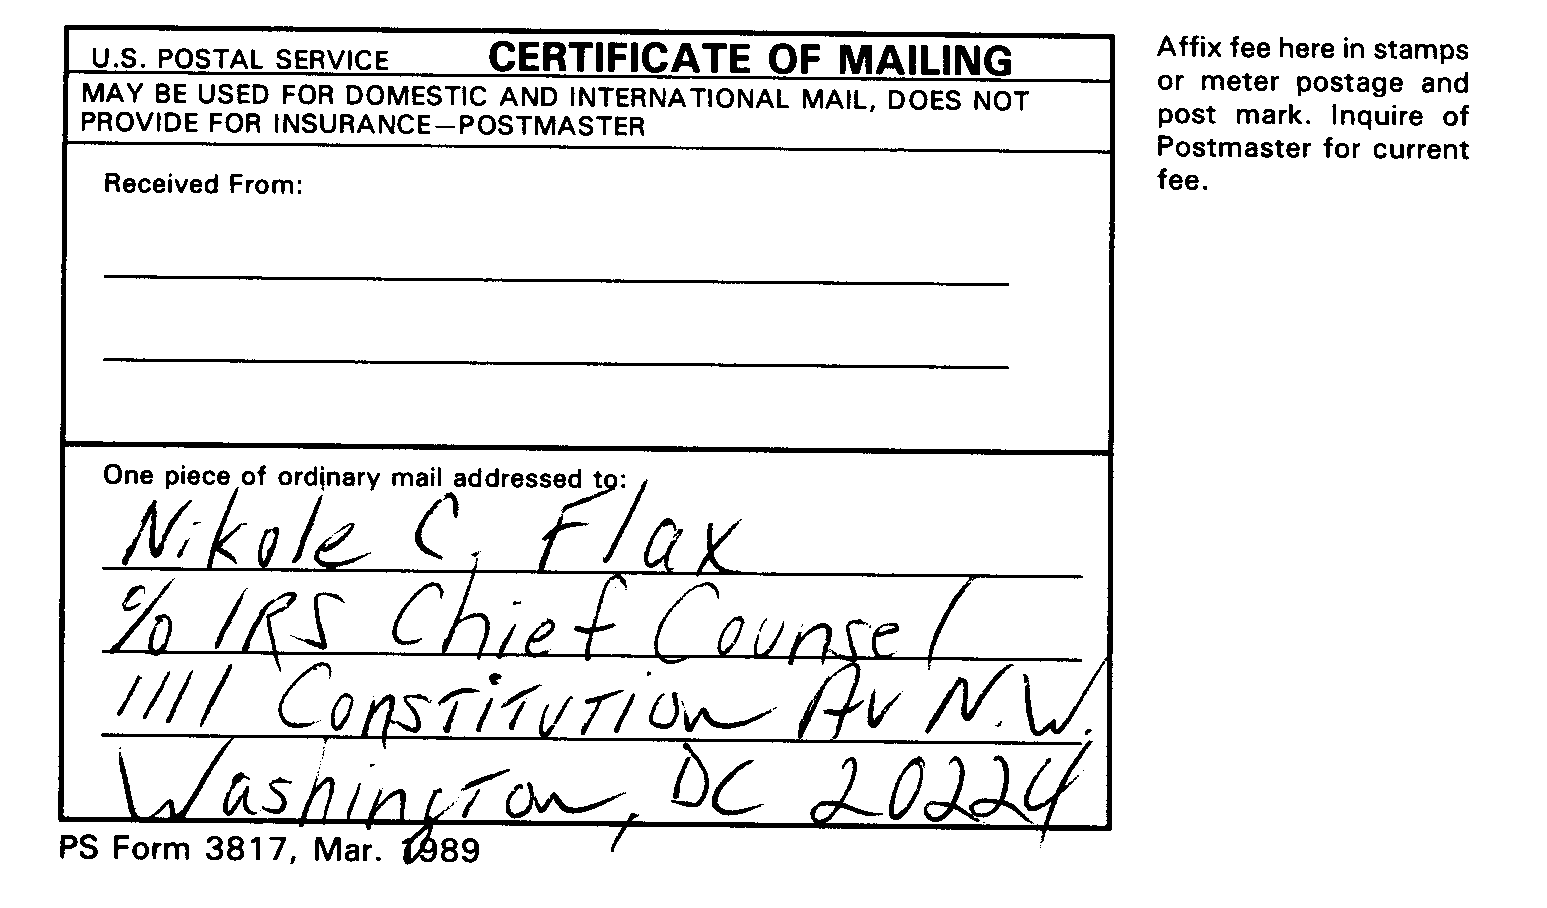 U.S. POSTAL SERVICE CERTIFICATE OF MAILING
MAY BE USED FOR DOMESTIC AND INTERNATIONAL MAIL, DOES NOT
PROVIDE FOR INSURANCE—POSTMASTER
Received From:
One piece of ordinary mail addressed to:
Nikole C. Flax
% IRS Chief Counsel
1111 Constitution Av N.W.
Washington, DC 20224
PS Form 3817, Mar. 1989
Affix fee here in stamps
or meter postage and
post mark. Inquire of
Postmaster for current
fee.